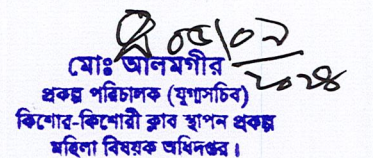 ০৫|০২
২০২৪
মোঃ আলমগীর
প্রকল্প পরিচালক (যুগ্মসচিব)
কিশোর-কিশোরী ক্লাব স্থাপন প্রকল্প
মহিলা বিষয়ক অধিদপ্তর।